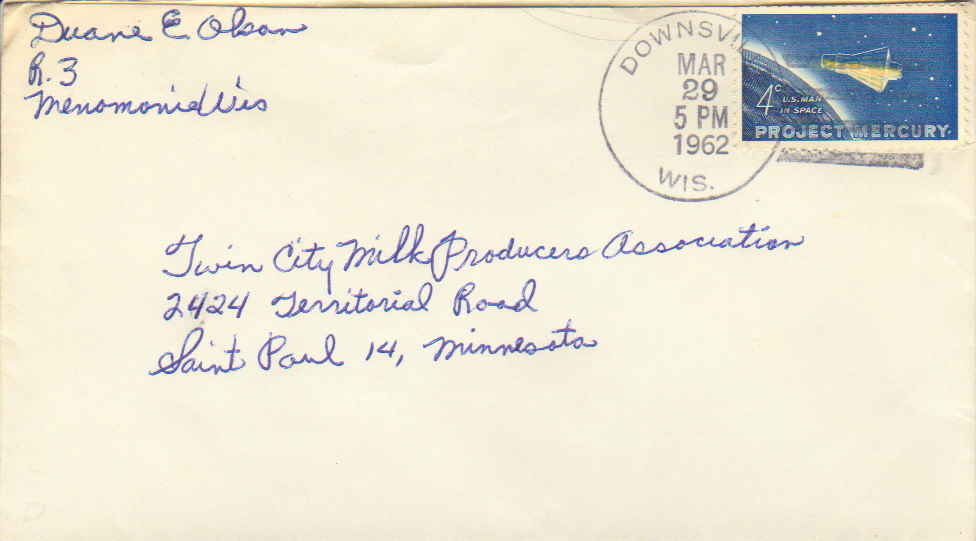 Duane E. Olson
R. 3
Menomonie Wis
DOWNSVI
MAR
29
5 PM
1962
WIS.
4c
U.S. MAN
IN SPACE
PROJECT MERCURY
Twin City Milk Producers Association
2424 Territorial Road
Saint Paul 14, Minnesota